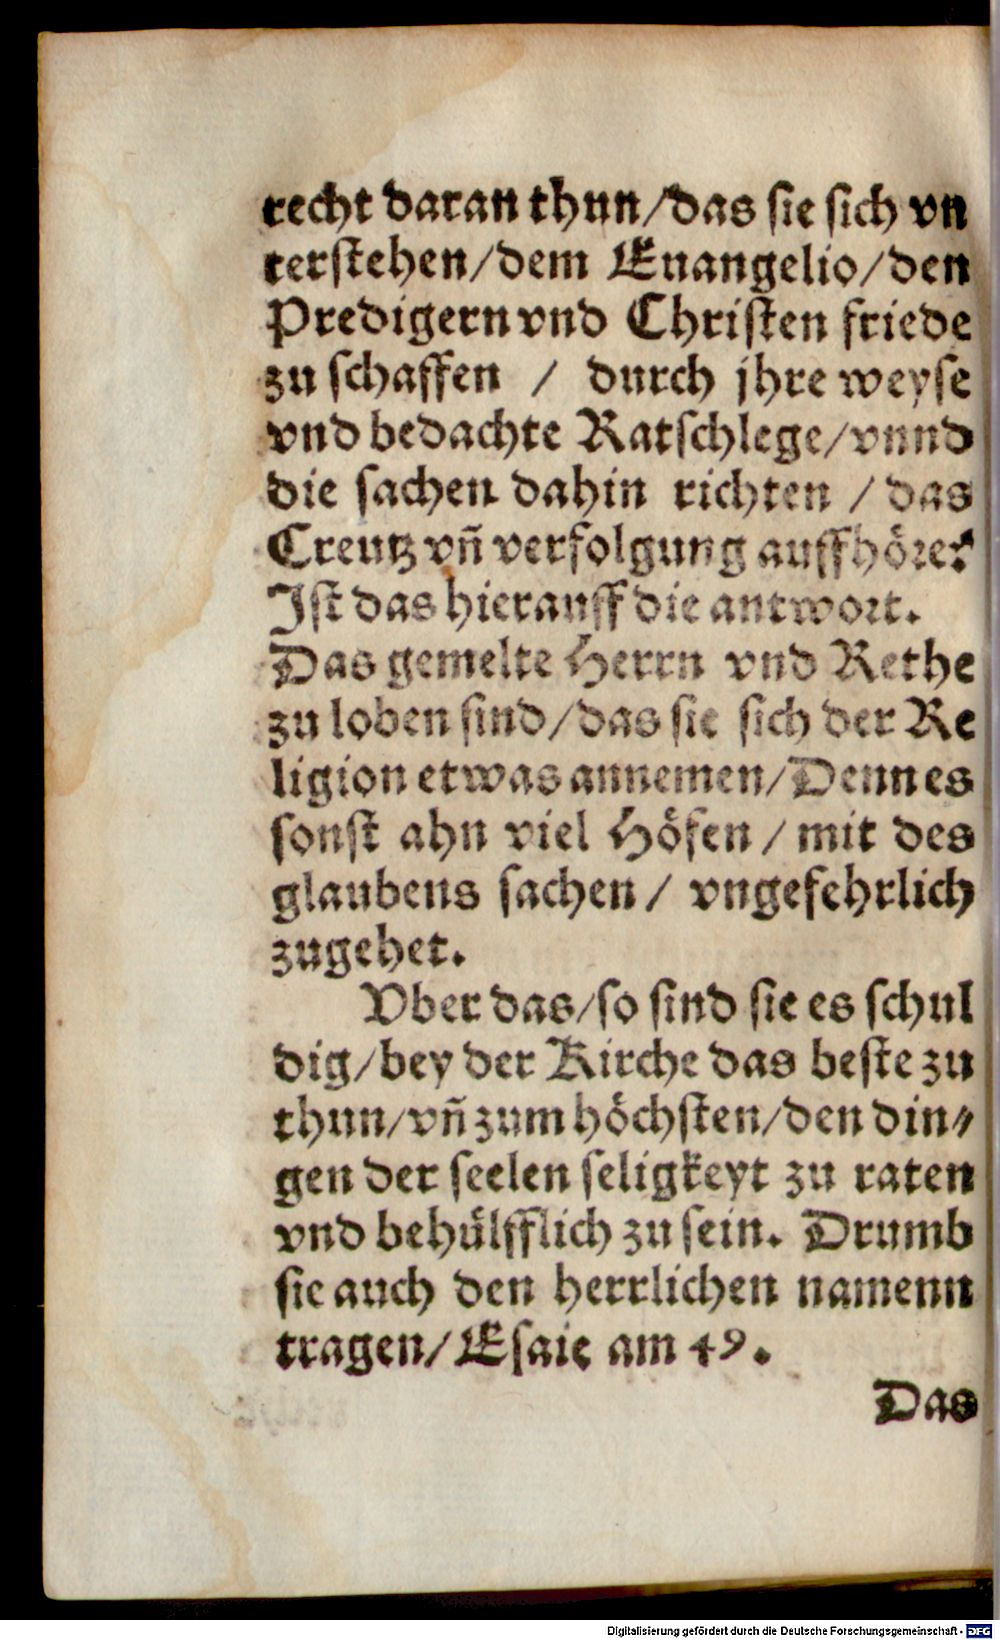 recht daran thun/das sie sich vn
terstehen/dem Euangelio/den
Predigern vnd Christen friede
zu schaffen / durch jhre weyse
vnd bedachte Ratschlege/vnnd
die sachen dahin richten / das
Creutz vñ verfolgung auffhöre?
Ist das hierauff die antwort.
Das gemelte Herrn vnd Rethe
zu loben sind/das sie sich der Re
ligion etwas annemen/Denn es
sonst ahn viel Höfen / mit des
glaubens sachen / vngefehrlich
zugehet.
Vber das/so sind sie es schul
dig/bey der Kirche das beste zu
thun/vñ zum höchsten/den din⸗
gen der seelen seligkeyt zu raten
vnd behülfflich zu sein. Drumb
sie auch den herrlichen namenn
tragen/Esaie am 49.
Das
Digitalisierung gefördert durch die Deutsche Forschungsgemeinschaft - DFG